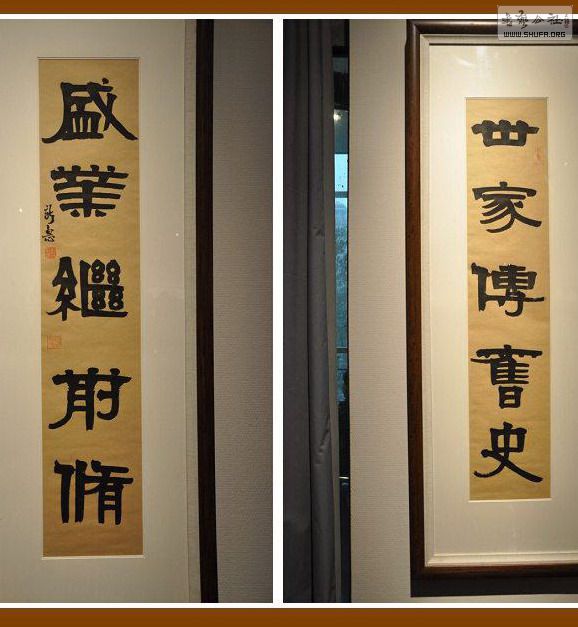 世家傳舊史
盛業繼前脩
書藝公社
WWW.SHUFA.ORG